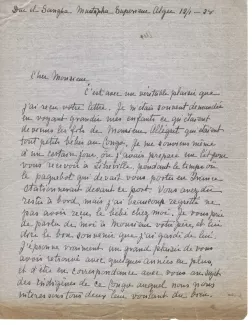 Rue d. Sangha Mustapha Supérieur Alger 12/1 — 28
Cher Monsieur,
C'est avec un véritable plaisir que
j'ai reçu votre lettre. Je m'étais souvent demandé
en voyant grandir mes enfants ce qu'étaient
devenus les fils de Monsieur Allégret qui étaient
tout petits bébés au Congo. Je me souviens même
d'un certain jour, où j'avais préparé un lit pour
vous recevoir à Libreville, pendant le temps où
le paquebot qui devait vous porter en France
stationnerait devant ce port. Vous avez dû
rester à bord, mais j'ai beaucoup regretté ne
pas avoir reçu le bébé chez moi. Je vous prie
de parler de moi à Monsieur votre père, et lui
dire le bon souvenir que j'ai gardé de lui.
J'éprouve vraiment un grand plaisir de vous
avoir retrouvé avec quelques années en plus,
et d'être en correspondance avec vous au sujet
des indigènes de ce Congo auquel nous nous
intéressons tous deux leur voulant du bien.